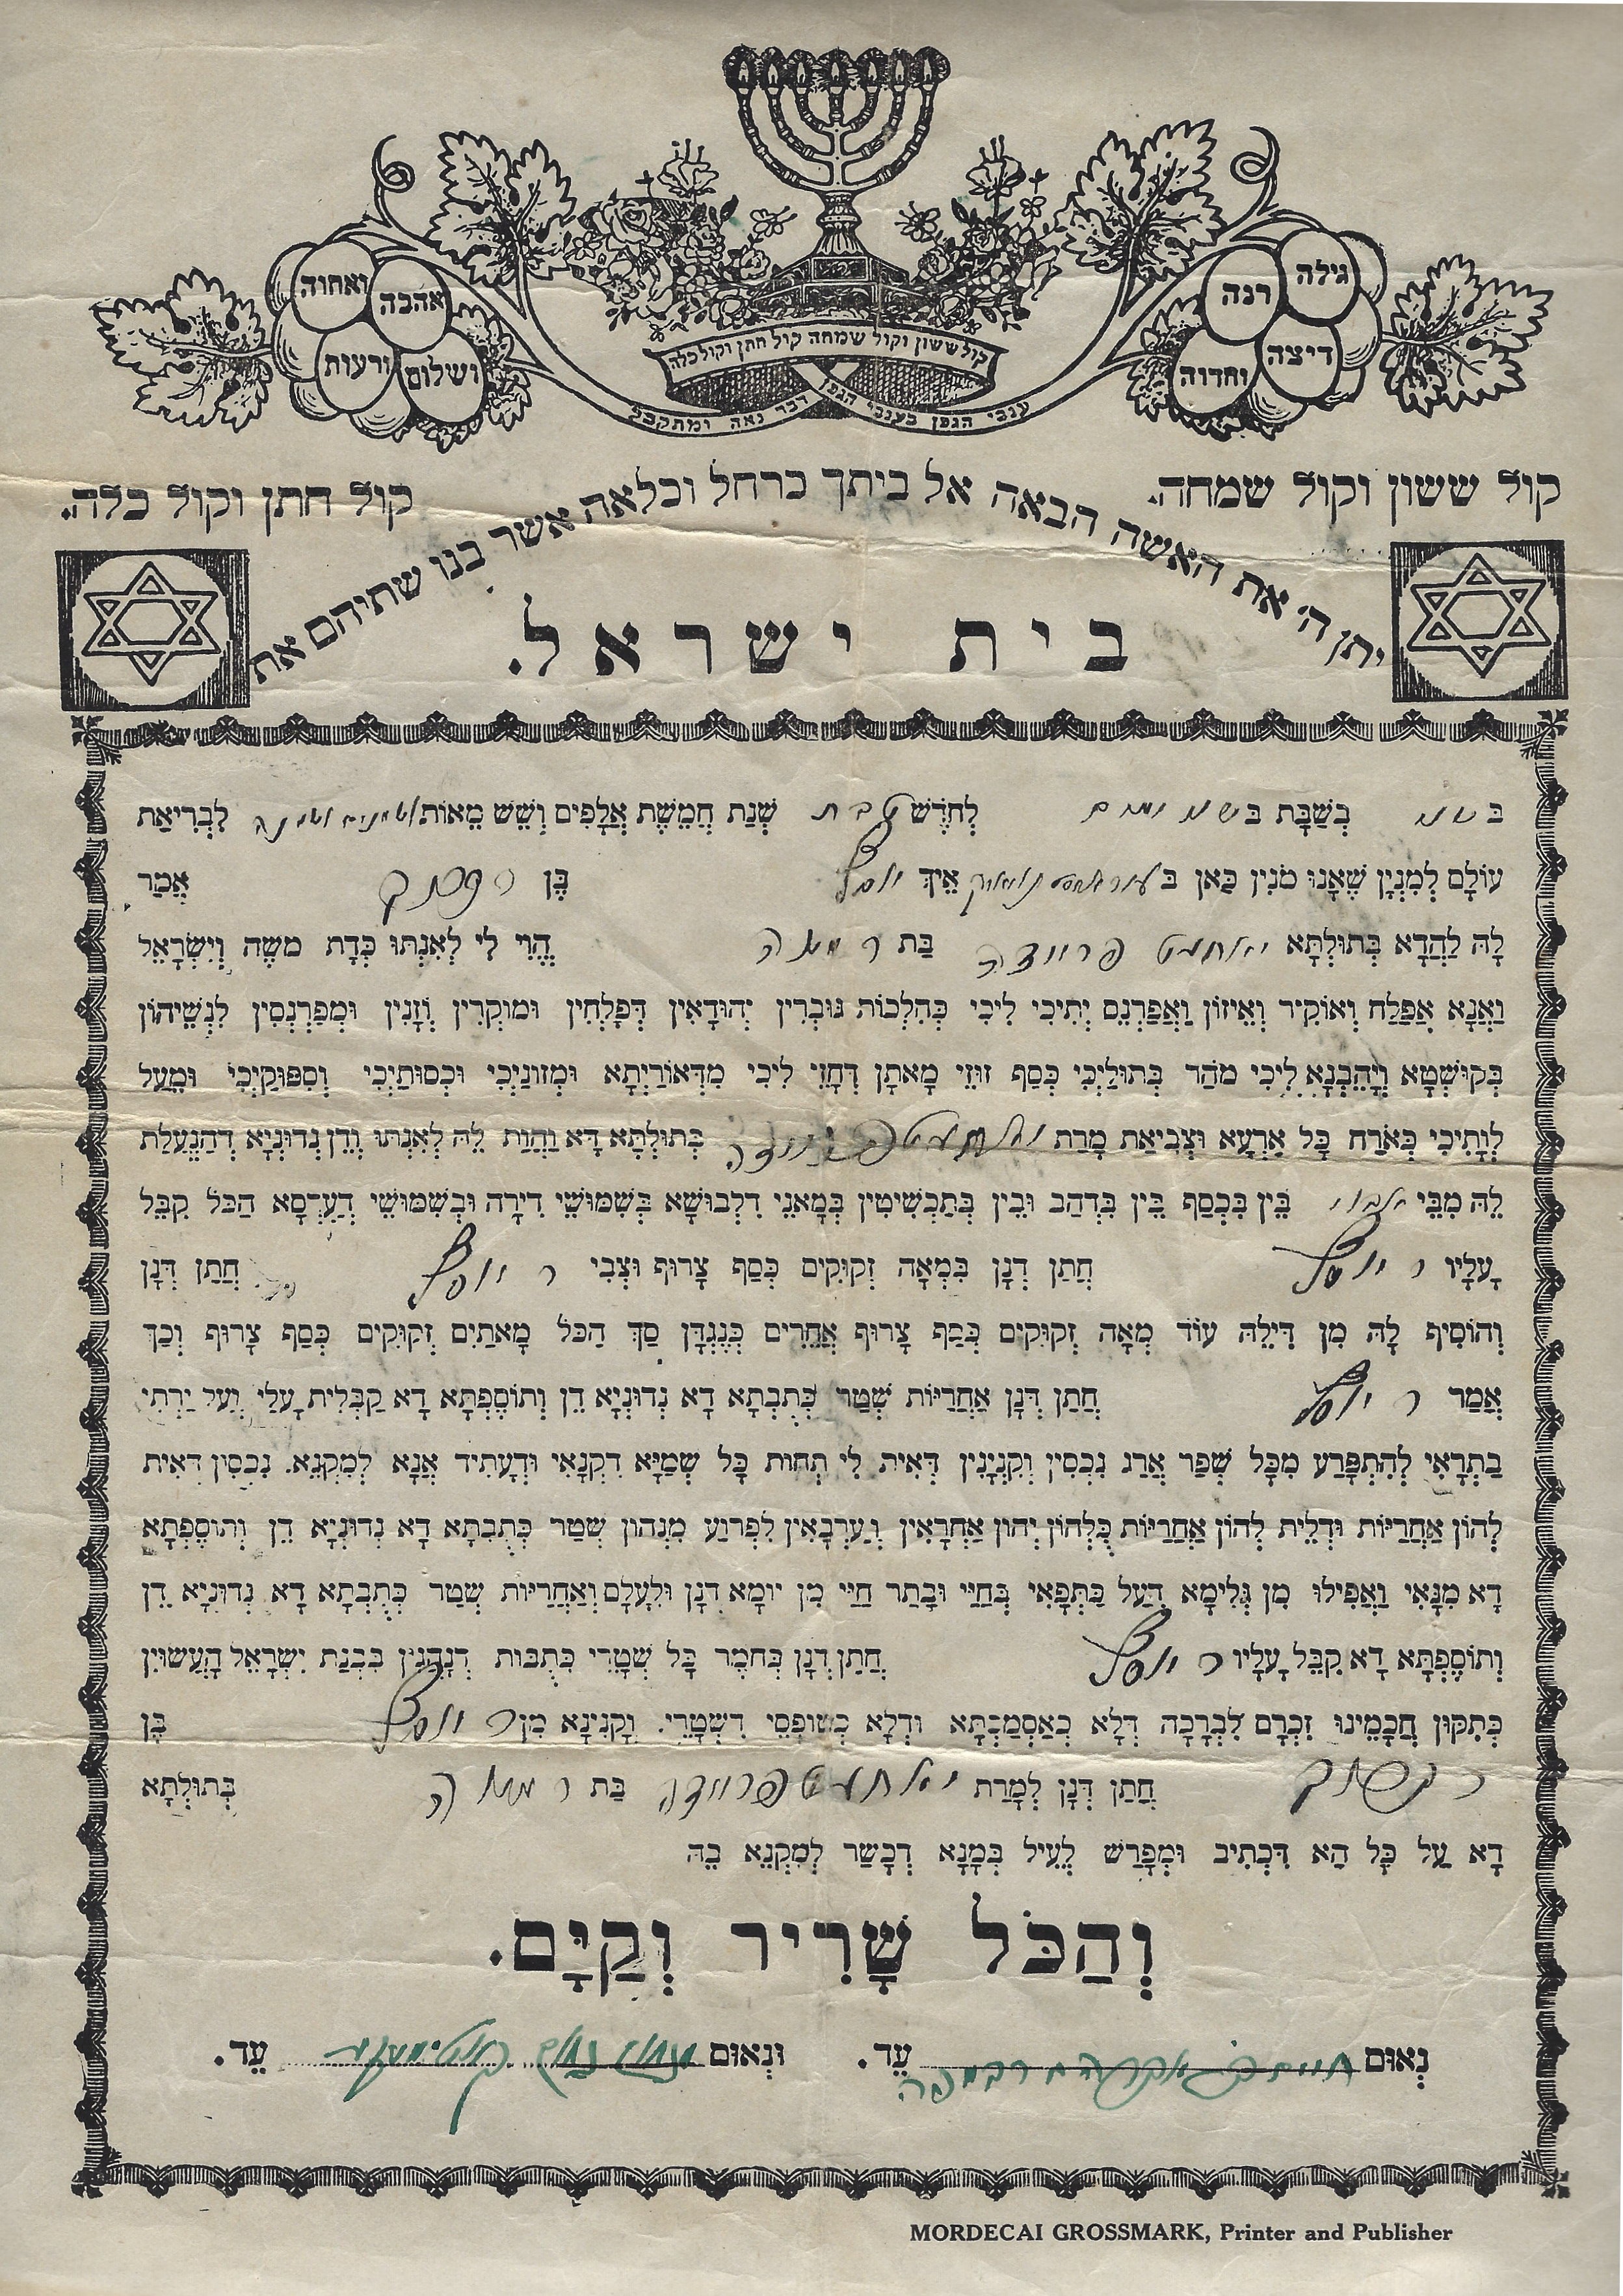 גילה
רנה
דיצה
וחדוה
אהבה
ואחוה
ושלום
ורעות
קול ששון וקול שמחה קול חתן וקול כלה
ענבי הגפן בענבי הגפן דבר נאה ומתקבל
קול ששון וקול שמחה. קול חתן וקול כלה.
יתן ה' את האשה הבאה אל ביתך כרחל וכלאה אשר בנו שתיהם את
בית ישראל.
בּ בְּשַׁבָּת בּ לְחֹדֶשׁ טבת שְׁנַת חֲמֵשֶׁת אֲלָפִים וְשֵׁשׁ מֵאוֹת ושמונים ושמונה לִבְרִיאַת
עוֹלָם לְמִנְיָן שֶׁאָנוּ מוֹנִין כַּאן בּ אֵיךְ יוסף בֶּן ר אֲמַר
לָהּ לַהֲדָא בְּתוּלְתָּא בַּת ר הֱוִי לִי לְאִנְתּוּ כְּדַת מֹשֶׁה וְיִשְׂרָאֵל
וַאֲנָא אֶפְלַח וְאוֹקִיר וְאֵיזוֹן וַאֲפַרְנֵס יְתִיכִי לִיכִי כְּהִלְכוֹת גּוּבְרִין יְהוּדָאִין דְּפָלְחִין וּמוֹקְרִין וְזָנִין וּמְפַרְנְסִין לִנְשֵׁיהוֹן
בְּקוּשְׁטָא וְיָהֵבְנָא לִיכִי מֹהַר בְּתוּלַיְכִי כְּסַף זוּזֵי מָאתָן דְּחָזֵי לִיכִי מִדְּאוֹרַיְתָא וּמְזוֹנַיְכִי וּכְסוּתַיְכִי וְסִפּוּקַיְכִי וּמֵעַל
לְוָתִיכִי כְּאֹרַח כָּל אַרְעָא וּצְבִיאַת מָרַת בְּתוּלְתָּא דָא וַהֲוַת לֵהּ לְאִנְתּוּ וְדֵן נְדוּנְיָא דְהַנְעֵלַת
לֵהּ מִבֵּי אבוה בֵּין בִּכְסַף בֵּין בִּדְהַב וּבֵין בְּתַכְשִׁיטִין בְּמָאנֵי דִלְבוּשָׁא בְּשִׁמּוּשֵׁי דִירָה וּבְשִׁמּוּשֵׁי דְעַרְסָא הַכֹּל קִבֵּל
עָלָיו ר יוסף חֲתַן דְּנָן בִּמְאָה זְקוּקִים כְּסַף צָרוּף וּצְבִי ר יוסף חֲתַן דְּנָן
וְהוֹסִיף לָהּ מִן דִּילֵהּ עוֹד מְאָה זְקוּקִים כְּסַף צָרוּף אֲחֵרִים כְּנֶגְדָּן סַךְ הַכֹּל מָאתַיִם זְקוּקִים כְּסַף צָרוּף וְכַךְ
אֲמַר ר יוסף חֲתַן דְּנָן אַחֲרָיוּת שְׁטַר כְּתֻבְתָא דָא נְדוּנְיָא דֵן וְתוֹסֶפְתָּא דָא קַבְּלִית עֲלַי וְעַל יַרְתַי
בַּתְרָאִי לְהִתְפָּרַע מִכָּל שְׁפַר אֲרַג נִכְסִין וְקִנְיָנִין דְּאִית לִי תְּחוֹת כָּל שְׁמַיָּא דִקְנָאִי וּדְעָתִיד אֲנָא לְמִקְנֵא. נִכְסִין דְּאִית
לְהוֹן אַחֲרָיוּת וּדְלֵית לְהוֹן אַחֲרָיוּת כֻּלְּהוֹן יְהוֹן אַחֲרָאִין וְעַרְבָאִין לִפְרוֹעַ מִנְהוֹן שְׁטַר כְּתֻבְתָא דָא נְדוּנְיָא דֵן וְתוֹסֶפְתָּא
דָא מִנָּאִי וַאֲפִילוּ מִן גְּלִימָא דְעַל כַּתְפָּאִי בְּחַיַּי וּבָתַר חַיַּי מִן יוֹמָא דְנָן וּלְעָלַם וְאַחֲרָיוּת שְׁטַר כְּתֻבְתָא דָא נְדוּנְיָא דֵן
וְתוֹסֶפְתָּא דָא קִבֵּל עָלָיו ר יוסף חֲתַן דְּנָן כְּחֹמֶר כָּל שְׁטָרֵי כְּתֻבּוֹת דְּנָהֲגִין בִּבְנַת יִשְׂרָאֵל הָעֲשׂוּיִן
כְּתִקּוּן חֲכָמֵינוּ זִכְרָם לִבְרָכָה דְּלָא כְאַסְמַכְתָּא וּדְלָא כְטוֹפְסֵי דִשְׁטָרֵי. וְקָנִינָא מִן ר יוסף בֶּן
ר חֲתַן דְּנָן לְמָרַת בַּת ר בְּתוּלְתָּא
דָא עַל כָּל הָא דִּכְתִיב וּמְפָרַשׁ לְעֵיל בְּמָנָא דְכָשַׁר לְמִקְנֵא בֵהּ
וְהַכֹּל שָׁרִיר וְקַיָּם.
נְאוּם עֵד. וּנְאוּם עֵד.
MORDECAI GROSSMARK, Printer and Publisher